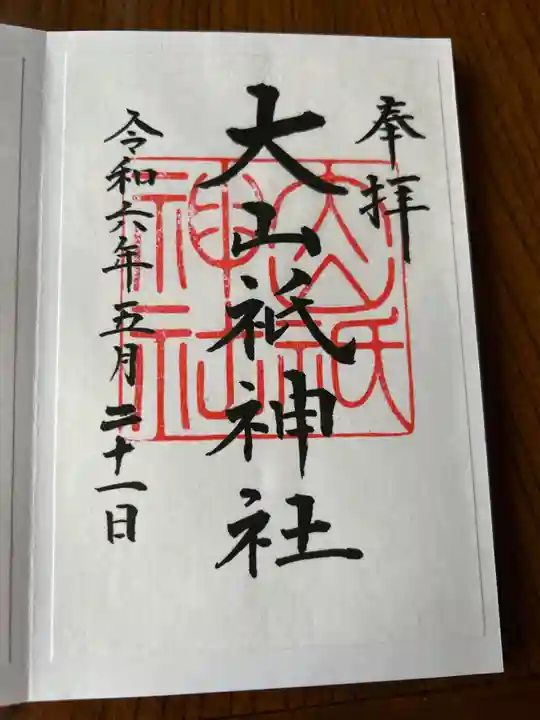 奉拝
大山祇神社
令和六年五月二十一日
大山祇
神社